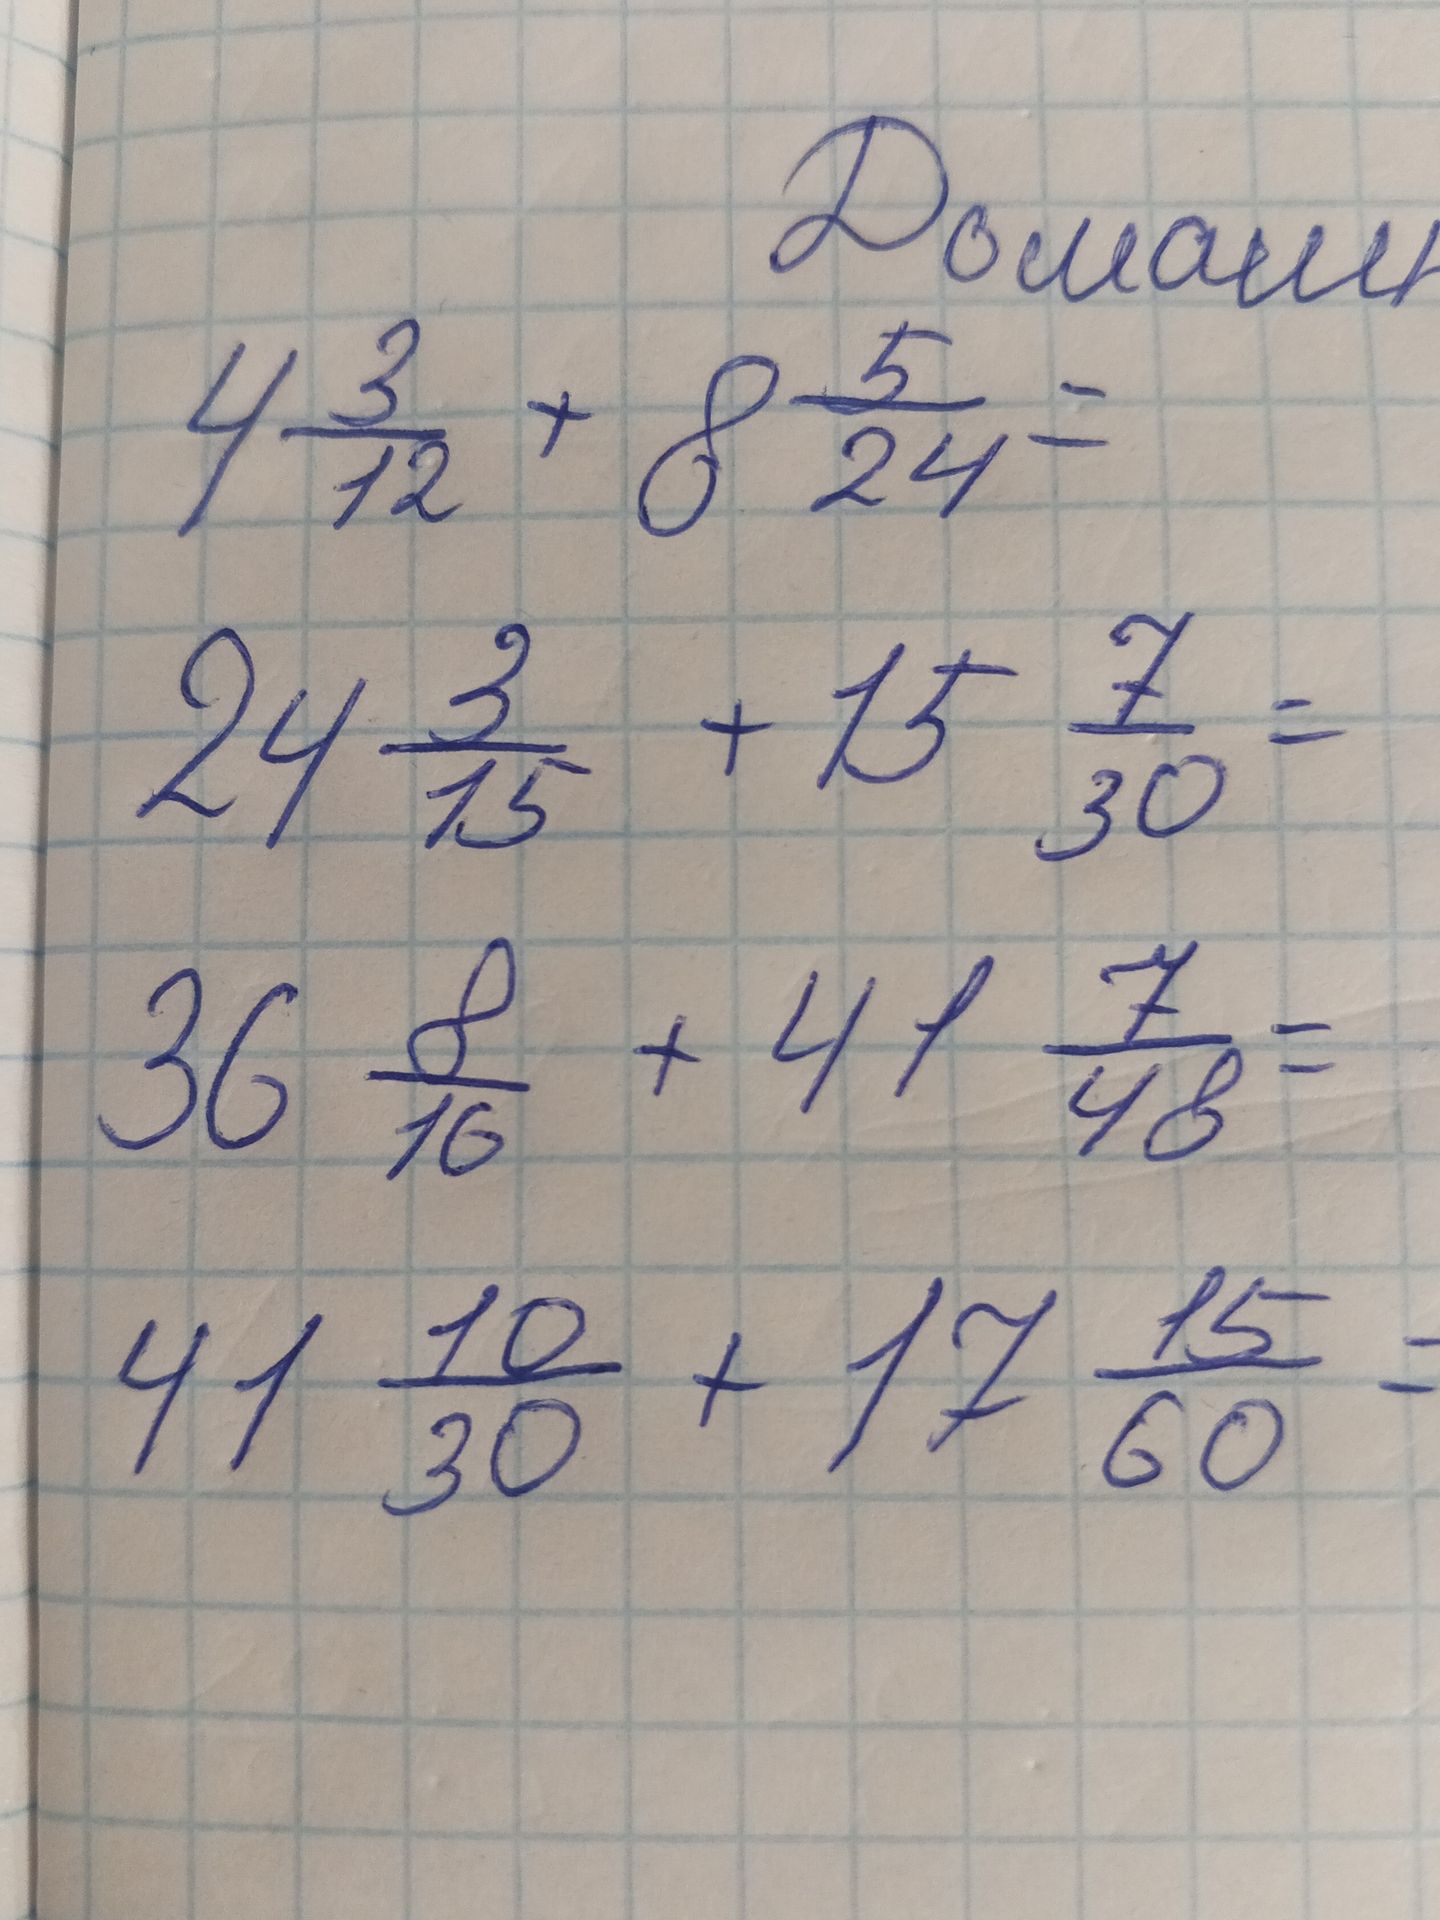 4 3/12 + 8 5/24 =
24 3/15 + 15 7/30 =
36 8/16 + 41 7/48 =
41 10/30 + 17 15/60 =